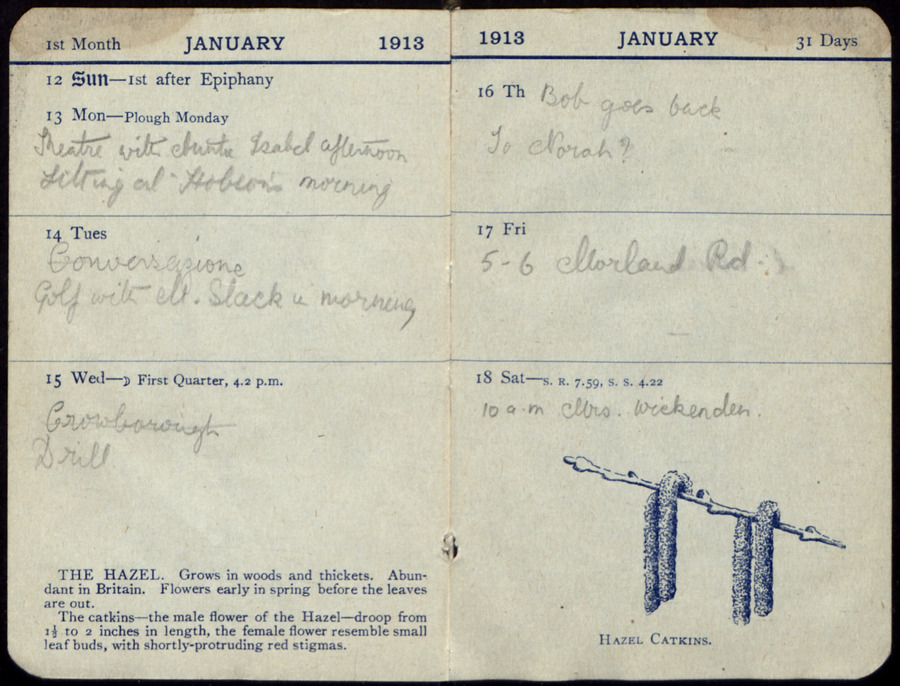 1st Month JANUARY 1913
12 Sun—1st after Epiphany
13 Mon—Plough Monday
Theatre with Auntie Isabel afternoon
Sitting at Hobson's morning
14 Tues
Conversazione
Golf with M. Slack in morning
15 Wed—☽ First Quarter, 4.2 p.m.
Crowborough
Drill
THE HAZEL. Grows in woods and thickets. Abun-
dant in Britain. Flowers early in spring before the leaves
are out.
The catkins—the male flower of the Hazel—droop from
1½ to 2 inches in length, the female flower resemble small
leaf buds, with shortly-protruding red stigmas.
1913 JANUARY 31 Days
16 Th Bob goes back
To Norah?
17 Fri
5-6 Morland Rd.
18 Sat—S. R. 7.59, S. S. 4.22
10 a.m Mrs. Wickenden.
HAZEL CATKINS.